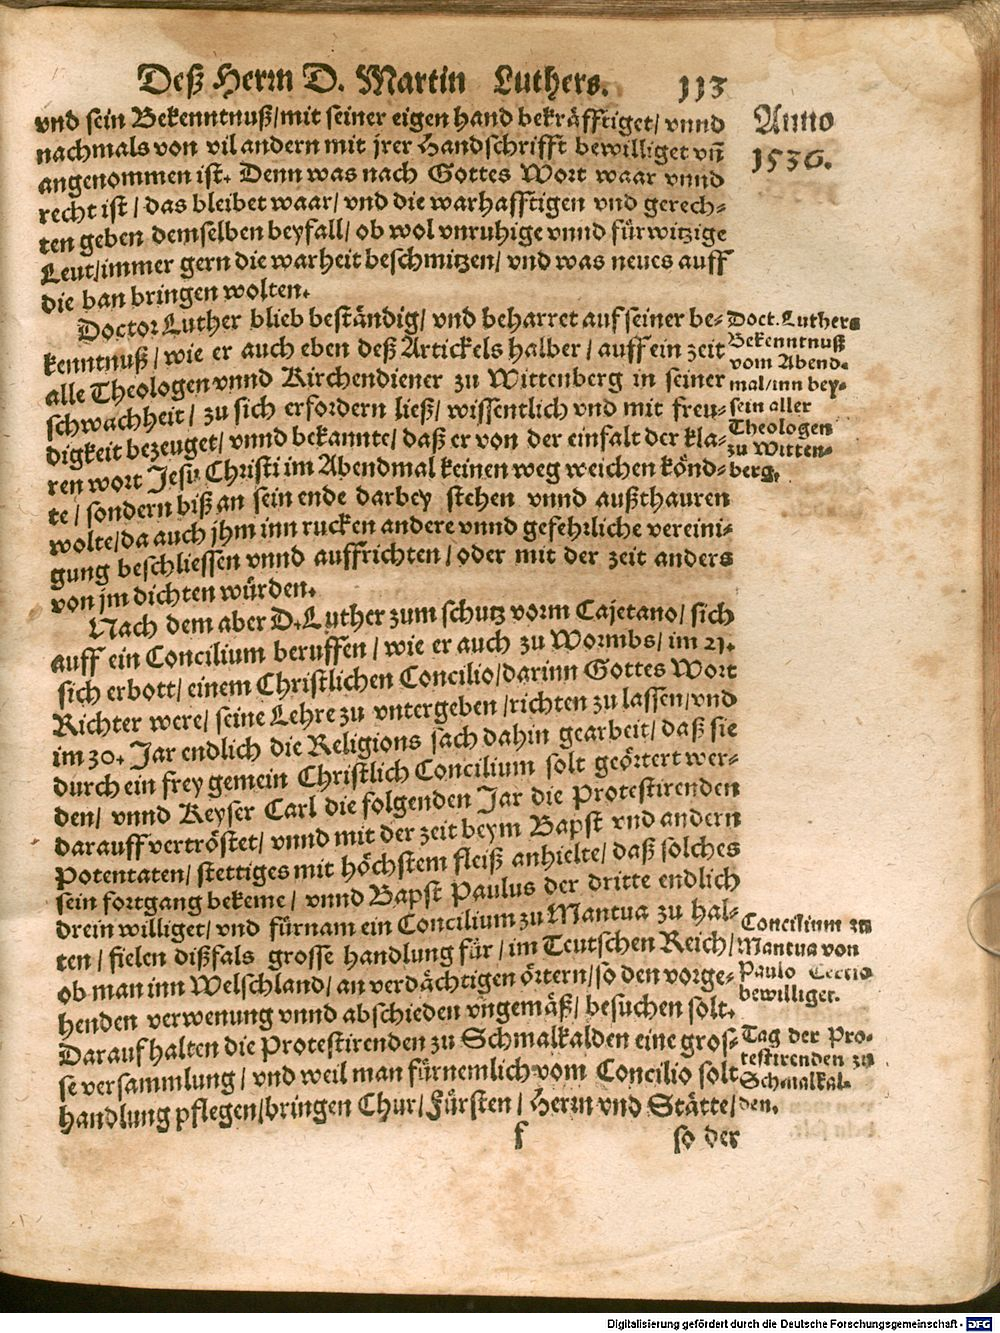 Deß Herrn D. Martin Luthers. 113
Anno
1536.
vnd sein Bekenntnuß/mit seiner eigen hand bekräfftiget/ vnnd
nachmals von vil andern mit jrer Handschrifft bewilliget vñ
angenommen ist. Denn was nach Gottes Wort waar vnnd
recht ist/ das bleibet waar/ vnd die warhafftigen vnd gerech-
ten geben demselben beyfall/ ob wol vnruhige vnnd fürwitzige
Leut/immer gern die warheit beschmitzen/ vnd was neues auff
die ban bringen wolten.
Doctor Luther blieb beständig/ vnd beharret auf seiner be-
kenntnuß/ wie er auch eben deß Artickels halber/ auff ein zeit
alle Theologen vnnd Kirchendiener zu Wittenberg in seiner
schwachheit/ zu sich erfordern ließ/ wissentlich vnd mit freu-
digkeit bezeuget/ vnnd bekannte/ daß er von der einfalt der kla-
ren wort Jesu Christi im Abendmal keinen weg weichen könd-
te/ sondern biß an sein ende darbey stehen vnnd außthauren
wolte/da auch jhm inn rucken andere vnnd gefehrliche vereini-
gung beschliessen vnnd auffrichten/ oder mit der zeit anders
von jm dichten würden.
Doct. Luthers
Bekenntnuß
vom Abend-
mal/inn bey-
sein aller
Theologen
zu Witten-
berg.
Nach dem aber D. Luther zum schutz vorm Cajetano/ sich
auff ein Concilium beruffen/ wie er auch zu Wormbs/ im 21.
sich erbott/ einem Christlichen Concilio/darinn Gottes Wort
Richter were/ seine Lehre zu vntergeben/richten zu lassen/vnd
im 30. Jar endlich die Religions sach dahin gearbeit/ daß sie
durch ein frey gemein Christlich Concilium solt geörtert wer-
den/ vnnd Keyser Carl die folgenden Jar die Protestirenden
darauff vertröstet/ vnnd mit der zeit beym Bapst vnd andern
Potentaten/ stettiges mit höchstem fleiß anhielte/ daß solches
sein fortgang bekeme/ vnnd Bapst Paulus der dritte endlich
drein williget/ vnd fürnam ein Concilium zu Mantua zu hal-
ten/ fielen dißfals grosse handlung für/ im Teutschen Reich/
ob man inn Welschland/ an verdächtigen örtern/so den vorge-
henden verwenung vnnd abschieden vngemäß/ besuchen solt.
Darauf halten die Protestirenden zu Schmalkalden eine gros-
se versammlung/ vnd weil man fürnemlich vom Concilio solt
handlung pflegen/bringen Chur/Fürsten/ Herrn vnd Stätte/
Concilium zu
Mantua von
Paulo Tertio
bewilliget.
Tag der Pro-
testirenden zu
Schmalkal-
den.
f so der
Digitalisierung gefördert durch die Deutsche Forschungsgemeinschaft - DFG